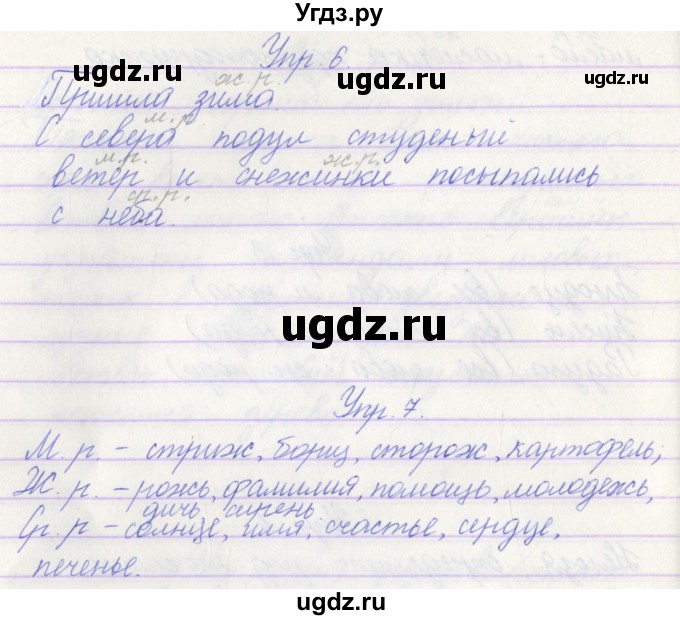 Угдз.ру
Упр. 6.
ugdz.ru ugdz.ru
ж.р.
Пришла зима.
м.р.
С севера подул студеный
м.р. ж.р.
ветер и снежинки посыпались
ср.р.
с неба.
ugdz.ru
Упр. 7.
М. р. – стриж, борщ, сторож, картофель,
Ж. р. – рожь, фамилия, помощь, молодежь,
дичь, сирень
Ср. р – солнце, имя, счастье, сердце,
печенье.
ugdz.ru